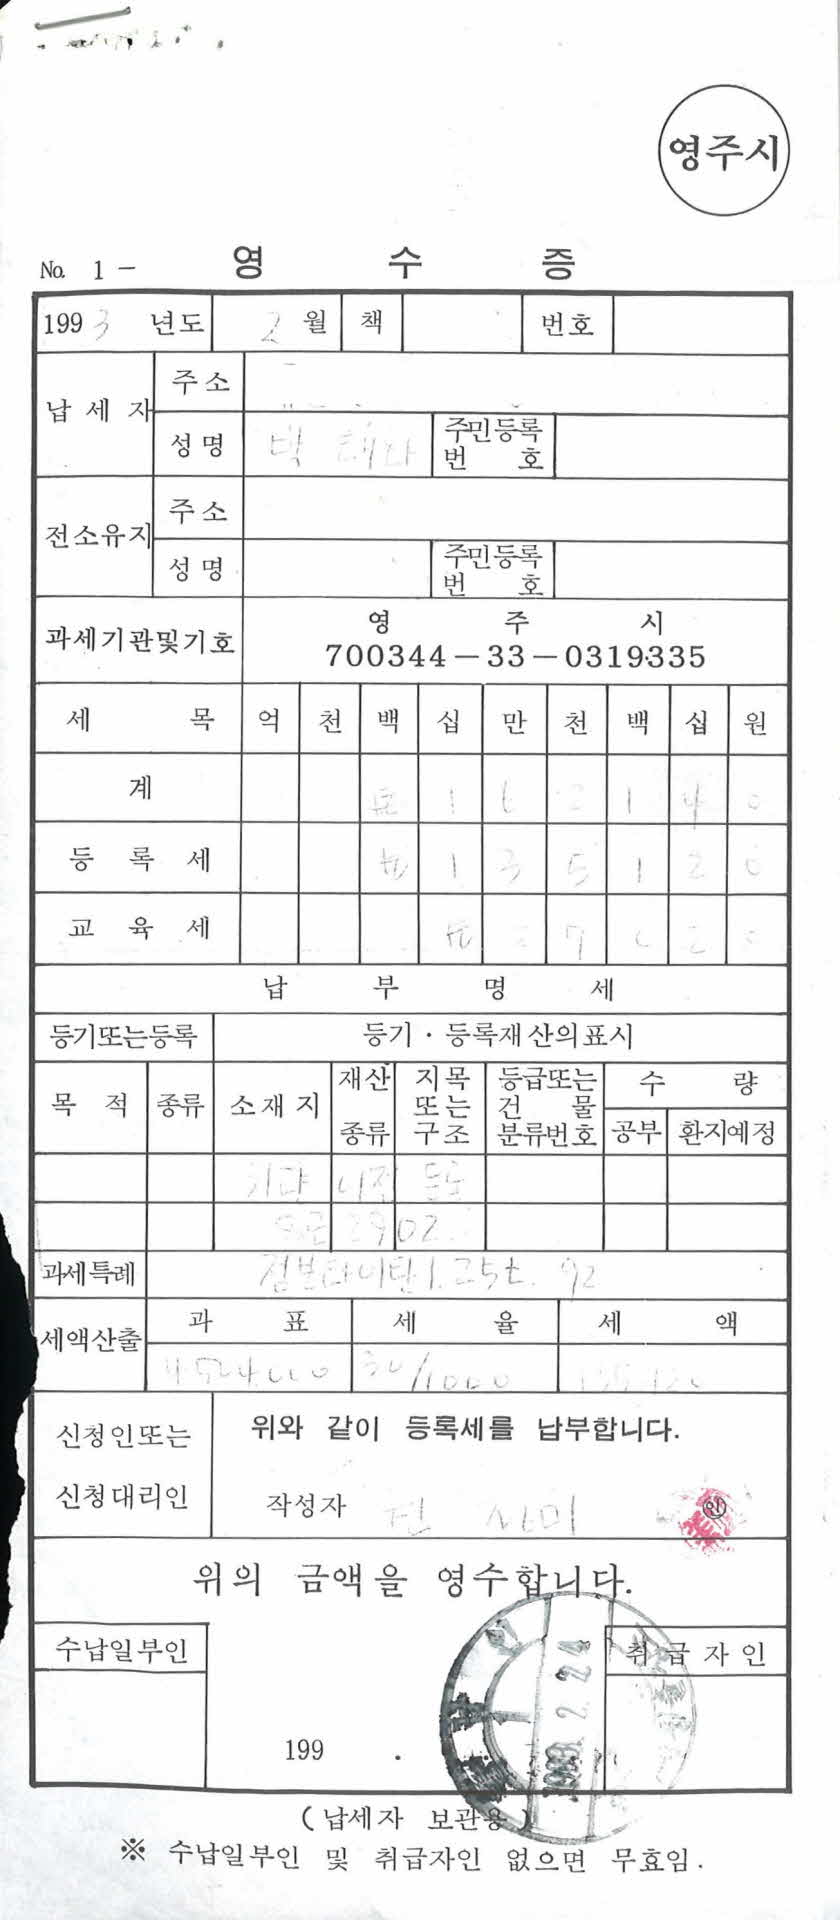 영주시
No. 1 - 영 수 증
1993 년도 2 월 책 번호
납 세 자 주 소
성 명 박 주민등록번 호
전소유지 주 소
성 명 주민등록번 호
과세기관및기호 영 주 시
700344-33-0319335
세 목 억 천 백 십 만 천 백 십 원
계 ₩ 1 6 2 1 4 0
등 록 세 ₩ 1 3 5 1 2 0
교 육 세 ₩ 2 7 0 2 0
납 부 명 세
등기또는등록 등기 · 등록재산의표시
목 적 종류 소재지 재산종류 지목또는구조 등급또는건 물분류번호 수 량
공부 환지예정
이전 등록
2902
과세특례 점보타이탄 1.25t. 92
세액산출 과 표 세 율 세 액
30/1000 135120
신청인또는 위와 같이 등록세를 납부합니다.
신청대리인 작성자 인
위의 금액을 영수합니다.
수납일부인 취급자인
1993. 2. 24
199 .
(납세자 보관용)
※ 수납일부인 및 취급자인 없으면 무효임.